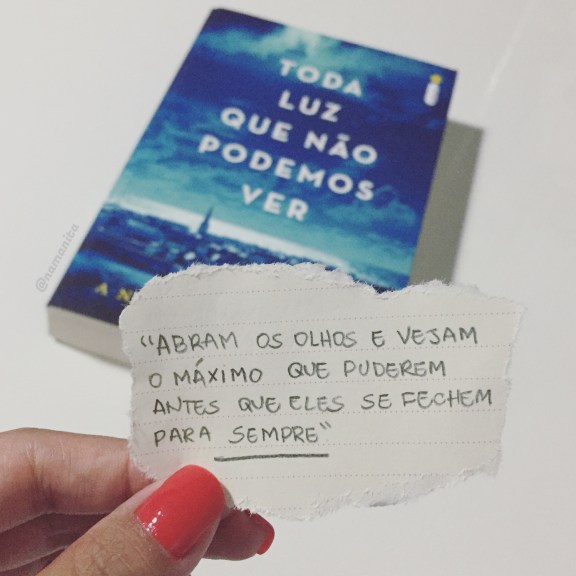 TODA
LUZ
QUE NÃO
PODEMOS
VER
@namanita
"ABRAM OS OLHOS E VEJAM
O MÁXIMO QUE PUDEREM
ANTES QUE ELES SE FECHEM
PARA SEMPRE"